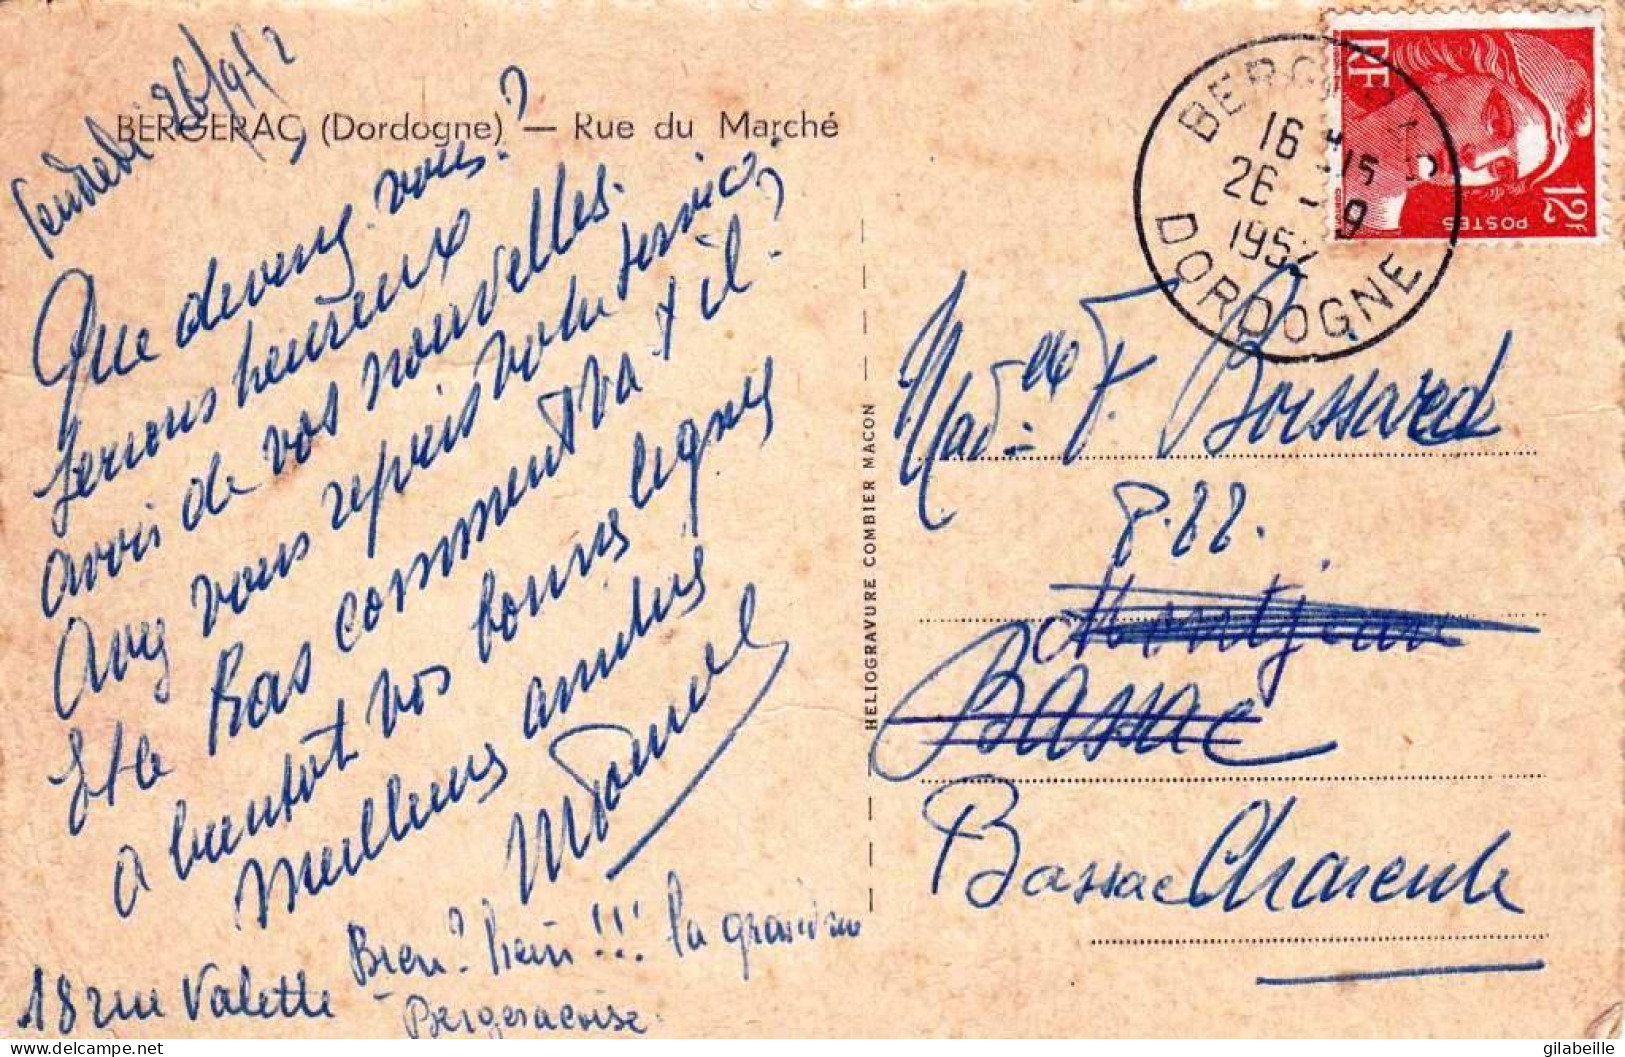 Vendredi 26/9/52
BERGERAC (Dordogne) — Rue du Marché
Que devenez vous?
serions heureux
avoir de vos nouvelles.
Avez vous repris votre service?
Et le bras comment va t il?
a bientôt vos bonnes lignes
Meilleures amitiés
18 rue Valette
Bien? hein!!! la grande
Bergeracoise.
HELIOGRAVURE COMBIER MACON
BERGERAC
16 H 15
26 - 9
1952
DORDOGNE
RF
12F
POSTES
Mad=elle F. Boissard
P.22.
Montjean
Bassac
Bassac Charente
gilabeille